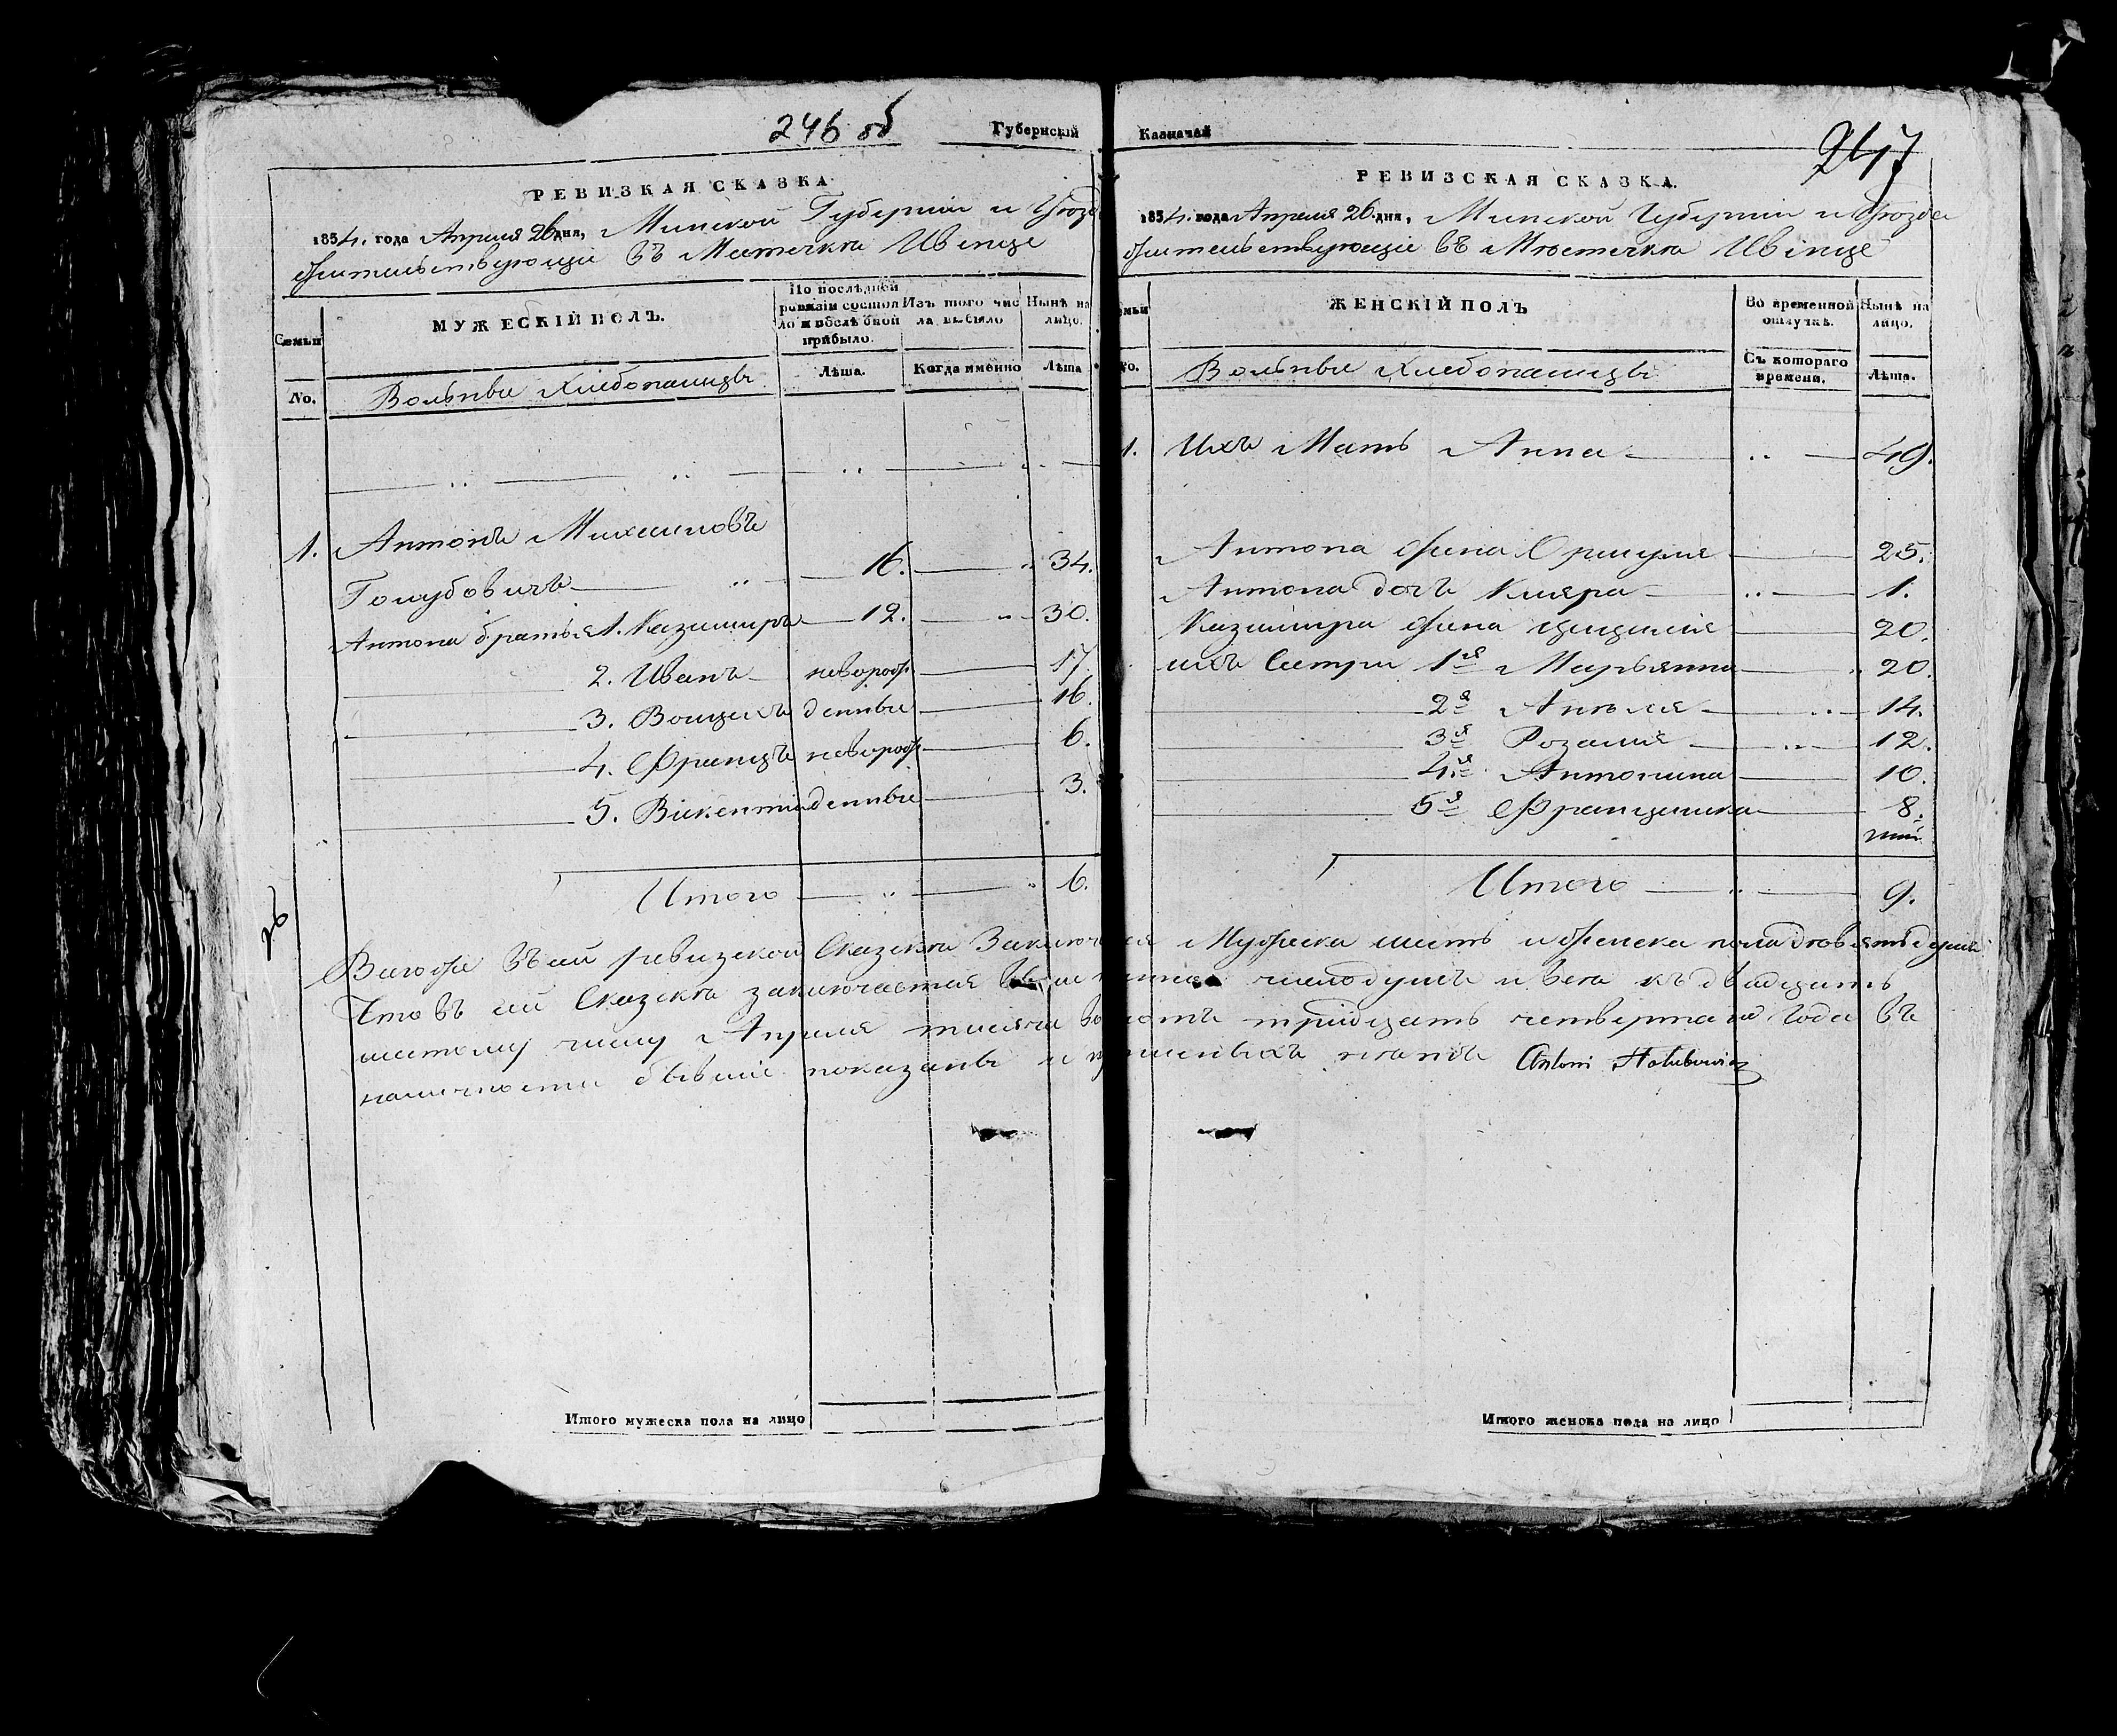 246 об
Губернскій
РЕВИЗКАЯ СКАЗКА
1834. года Апреля 26 дня, Минской Губерніи и Уѣзд
жительствующіе въ Местечкѣ Ивенце
Семьи
МУЖЕСКІЙ ПОЛЪ.
По послѣдней ревизіи состоя ло и послѣ оной прибыло.
Изъ того чис ла выбыло
Нынѣ на лицо.
No.
Вольные Хлебопашцы
Лѣта.
Когда именно
Лѣта
1. Антонъ Михайловъ
Голубовичъ 16. 34.
Антона братья 1. Казимиръ 12. 30.
2. Иванъ новорож 17.
3. Войцехъ денные 16.
4. Францъ новорож 6.
5. Викентій денные 3.
Итого 6.
26
Итого мужеска пола на лицо
Казначей
247
РЕВИЗСКАЯ СКАЗКА.
1834. года Апреля 26 дня, Минской Губерніи и Уѣзда
жительствующіе въ Мѣстечкѣ Ивенце
мьи
ЖЕНСКІЙ ПОЛЪ
Во временной отлучкѣ.
Нынѣ на лицо.
No.
Вольные Хлебопашцы
Съ котораго времени.
Лѣта.
1. Ихъ Мать Анна 49.
Антона жена Оршуля 25.
Антона дочь Кляра 1.
Казимира жена Цецилія 20.
ихъ Сестры 1я Марьянна 20.
2я Анеля 14.
3я Розалія 12.
4я Антонина 10.
5я Францишка 8.
Итого 9.
въ сей ревизской Сказкѣ Мужеска шесть и женска пола девять душъ
Что въ сей Сказкѣ заключается число душъ и къ двадцать
шестому числу Апреля тысяча тридцать четвертаго Года въ
наличности бывшіе показаны и Antoni Hołubowicz
Итого женска пола на лицо